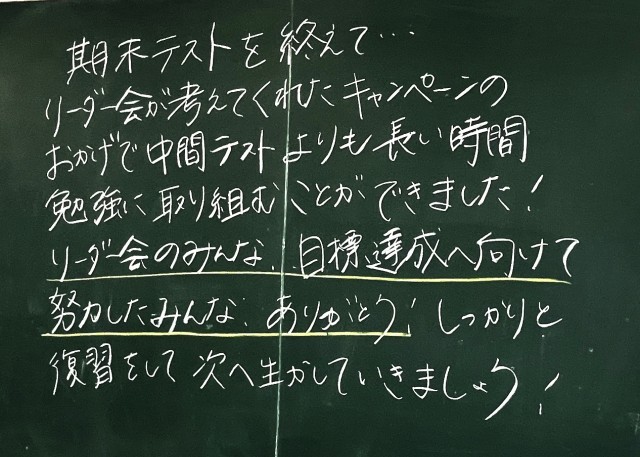 期末テストを終えて…
リーダー会が考えてくれたキャンペーンの
おかげで中間テストよりも長い時間
勉強に取り組むことができました!
リーダー会のみんな、目標達成へ向けて
努力したみんな、ありがとう!しっかりと
復習をして次へ生かしていきましょう!